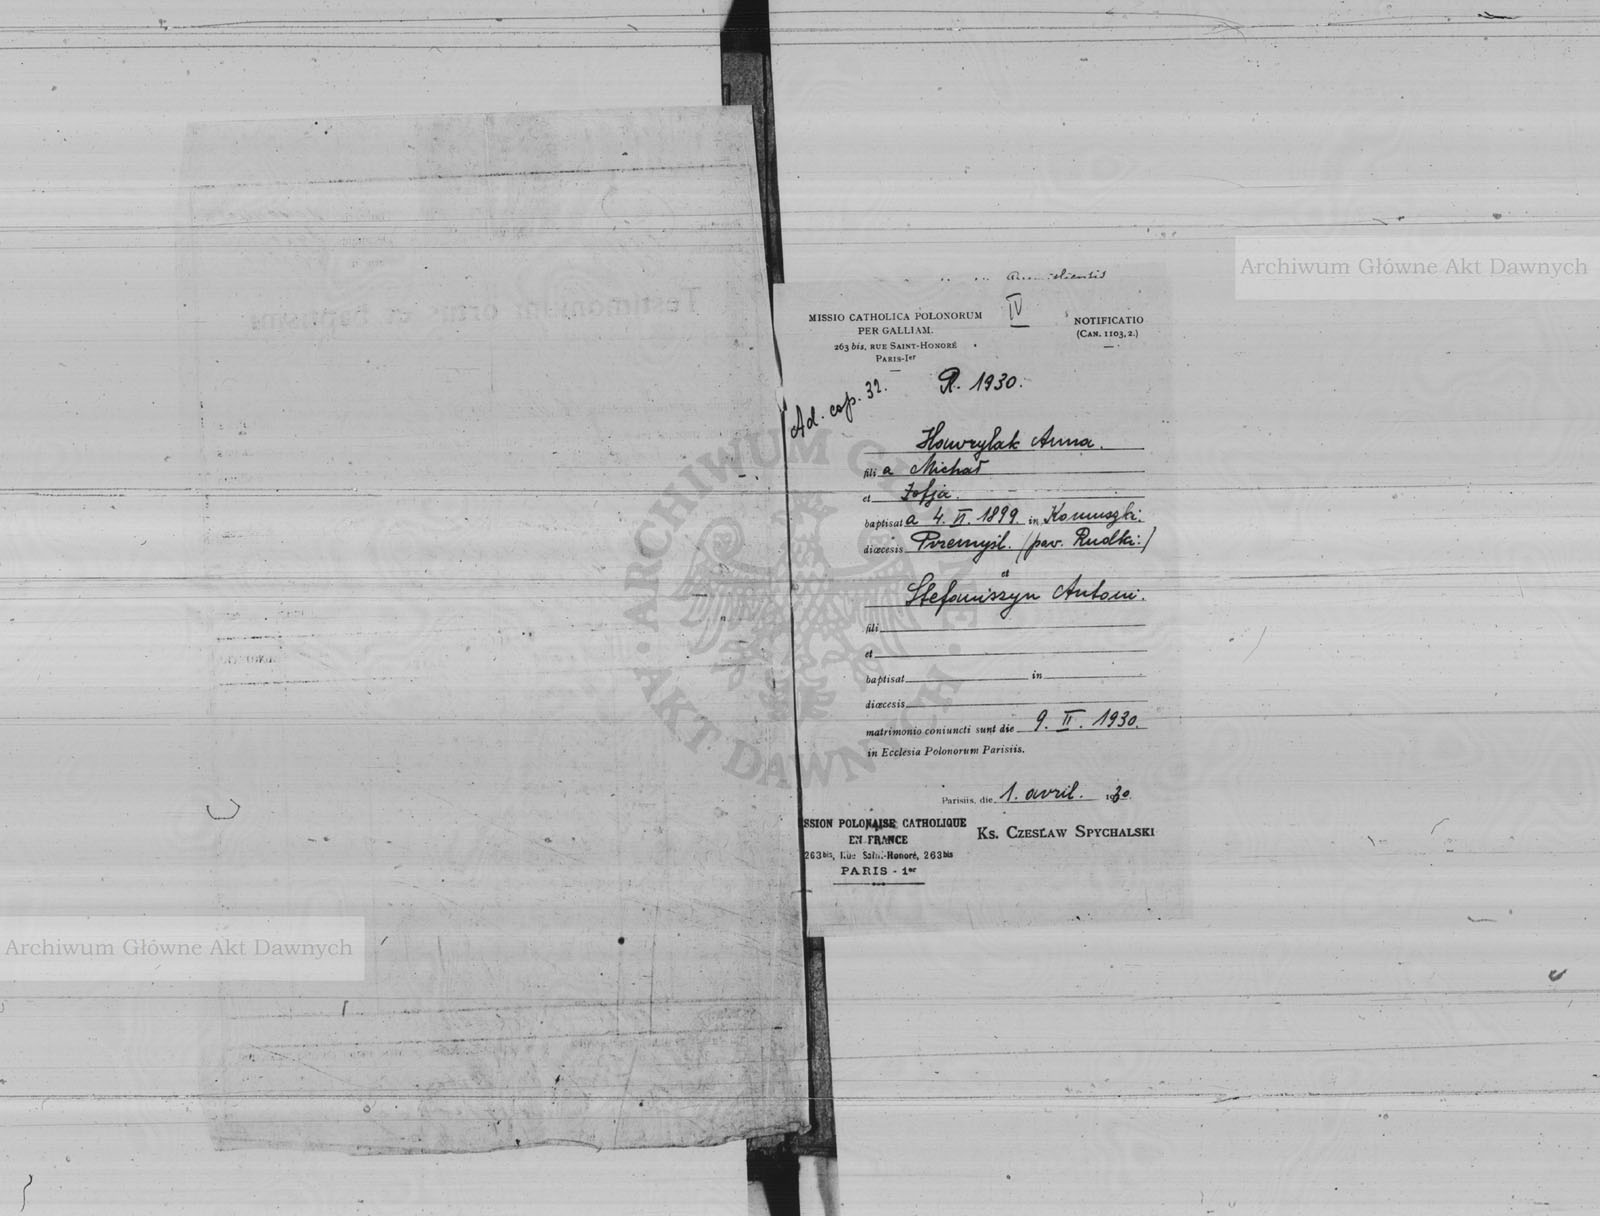 MISSIO CATHOLICA POLONORUM
PER GALLIAM.
263 bis, RUE SAINT-HONORÉ
PARIS-Ier
IV
NOTIFICATIO
(CAN. 1103, 2.)
Ad. cop. 32.
R. 1930.
Hawrylak Anna.
fili a Michał
et Zofja.
baptisat a 4. II. 1899. in Konuszki.
diœcesis Przemyśl. (pow. Rudki:)
et
Stefaniszyn Antoni.
fili
et
baptisat in
diœcesis
matrimonio coniuncti sunt die 9. II. 1930.
in Ecclesia Polonorum Parisiis.
Parisiis, die 1. avril. 1930.
SSION POLONAISE CATHOLIQUE
EN FRANCE
263bis, Rue Saint-Honoré, 263bis
PARIS - 1er
Ks. CZESŁAW SPYCHALSKI
Testimonium ortus et baptismi
Archiwum Główne Akt Dawnych
Archiwum Główne Akt Dawnych
ARCHIWUM GŁÓWNE AKT DAWNYCH